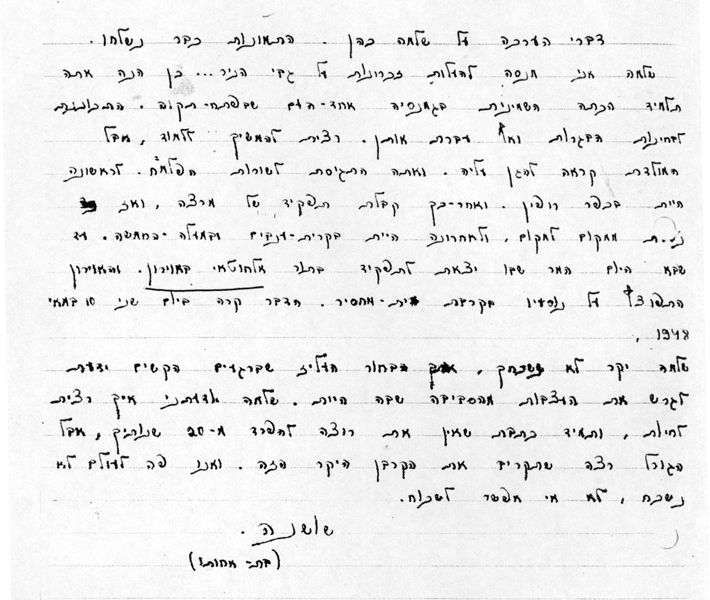 דברי הערכה על שלמה כהן. התמונות כבר נשלחו.
שלמה אני מנסה להעלות זכרונות על גבי הניר... כן הנה אתה
תלמיד הכתה השמינית בגמנסיה אחד-העם שבפתח-תקוה. התכוננת
לבחינות הבגרות ואף עברת אותן. רצית להמשיך ללמוד, אבל
המולדת קראה להגן עליה. ואתה התגיסת לשורות הפלמ"ח. לראשונה
היית בכפר רופין. ואחר-כך קבלת תפקיד של מרצה, ואז
ממקום למקום. ולאחרונה היית בקרית-ענבים ובמעלה-החמשה. עד
שבא היום המר שבו יצאת לתפקיד בתור אלחוטאי באוירון. והאוירון
התפוצץ על נוסעיו בקרבת בית-מחסיר. הדבר קרה ביום שני 10 במאי
1948.
שלמה יקר לא נשכחך, הבחור העליז שברגעים הקשים ידעת
לגרש את העצבות מהסביבה שבה היית. שלמה ידעתי איך רצית
לחיות, ותמיד כתבת שאין את רוצה להפרד מ-20 שנותיך, אבל
הגורל רצה שתקריב את הקרבן היקר הזה. ואנו פה לעולם לא
נשכח, לא אי אפשר לשכוח.
שושנה.
(בת-אחותו)